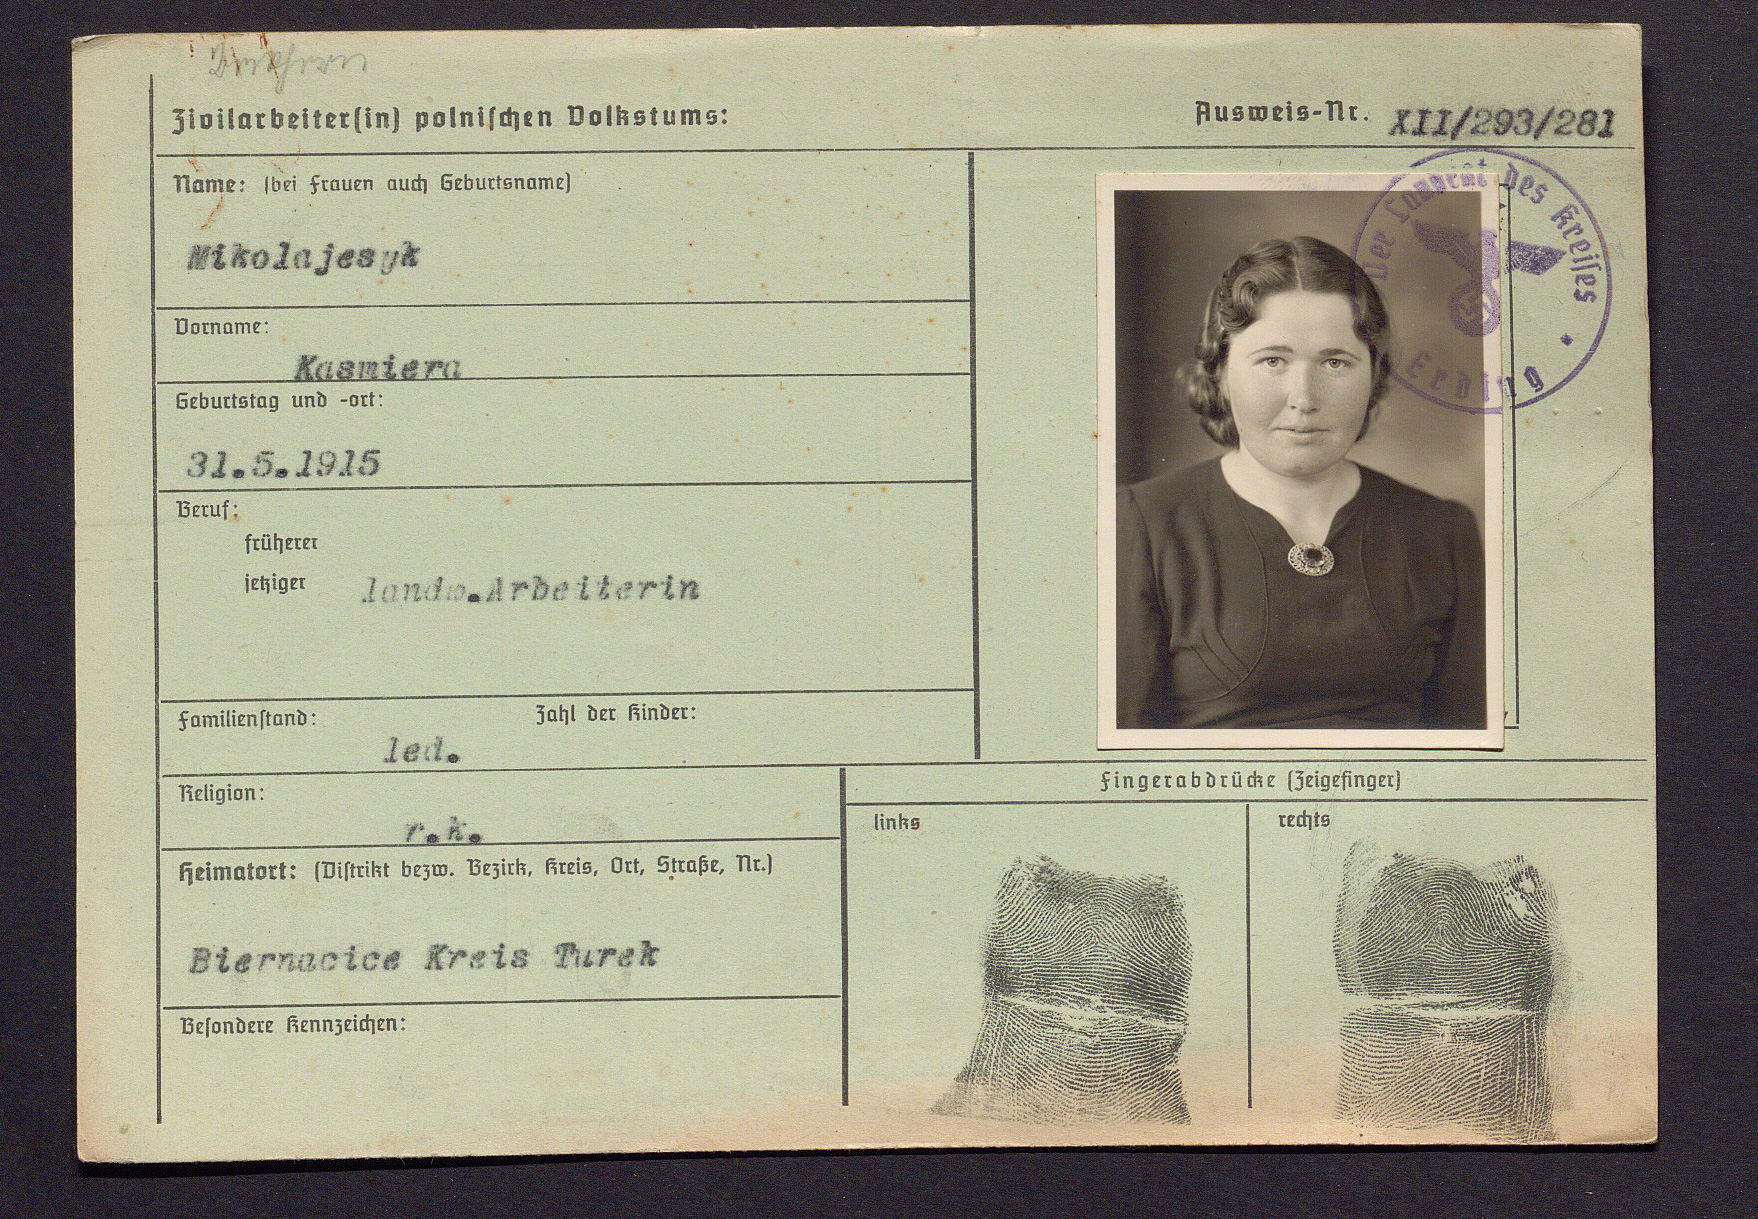 Zivilarbeiter(in) polnischen Volkstums:
Ausweis-Nr. XII/293/281
Name: (bei Frauen auch Geburtsname)
Mikolajesyk
Vorname:
Kasmiera
Geburtstag und -ort:
31.5.1915
Beruf:
früherer
jetziger landw.Arbeiterin
Familienstand: Zahl der Kinder:
led.
Religion:
r.k.
Heimatort: (Distrikt bezw. Bezirk, Kreis, Ort, Straße, Nr.)
Biernacice Kreis Turek
Besondere Kennzeichen:
Der Landrat des Kreises
Erding
Fingerabdrücke (Zeigefinger)
links rechts